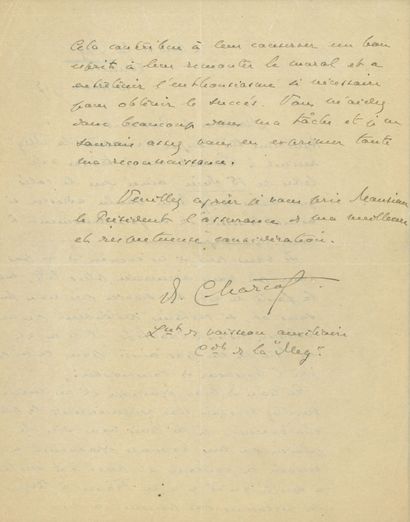 Cela contribue à leur conserver un bon
esprit à leur remonter le moral et a
entretenir l'enthousiasme si nécessaire
pour obtenir le succès. Vous m'aidez
donc beaucoup dans ma tâche et je ne
saurais assez vous en exprimer toute
ma reconnaissance.
Veuillez agréer je vous prie Monsieur
le Président l'assurance de ma meilleure
et respectueuse considération.
Charcot
Lnt de vaisseau auxiliaire
Cdt de la "Meg".